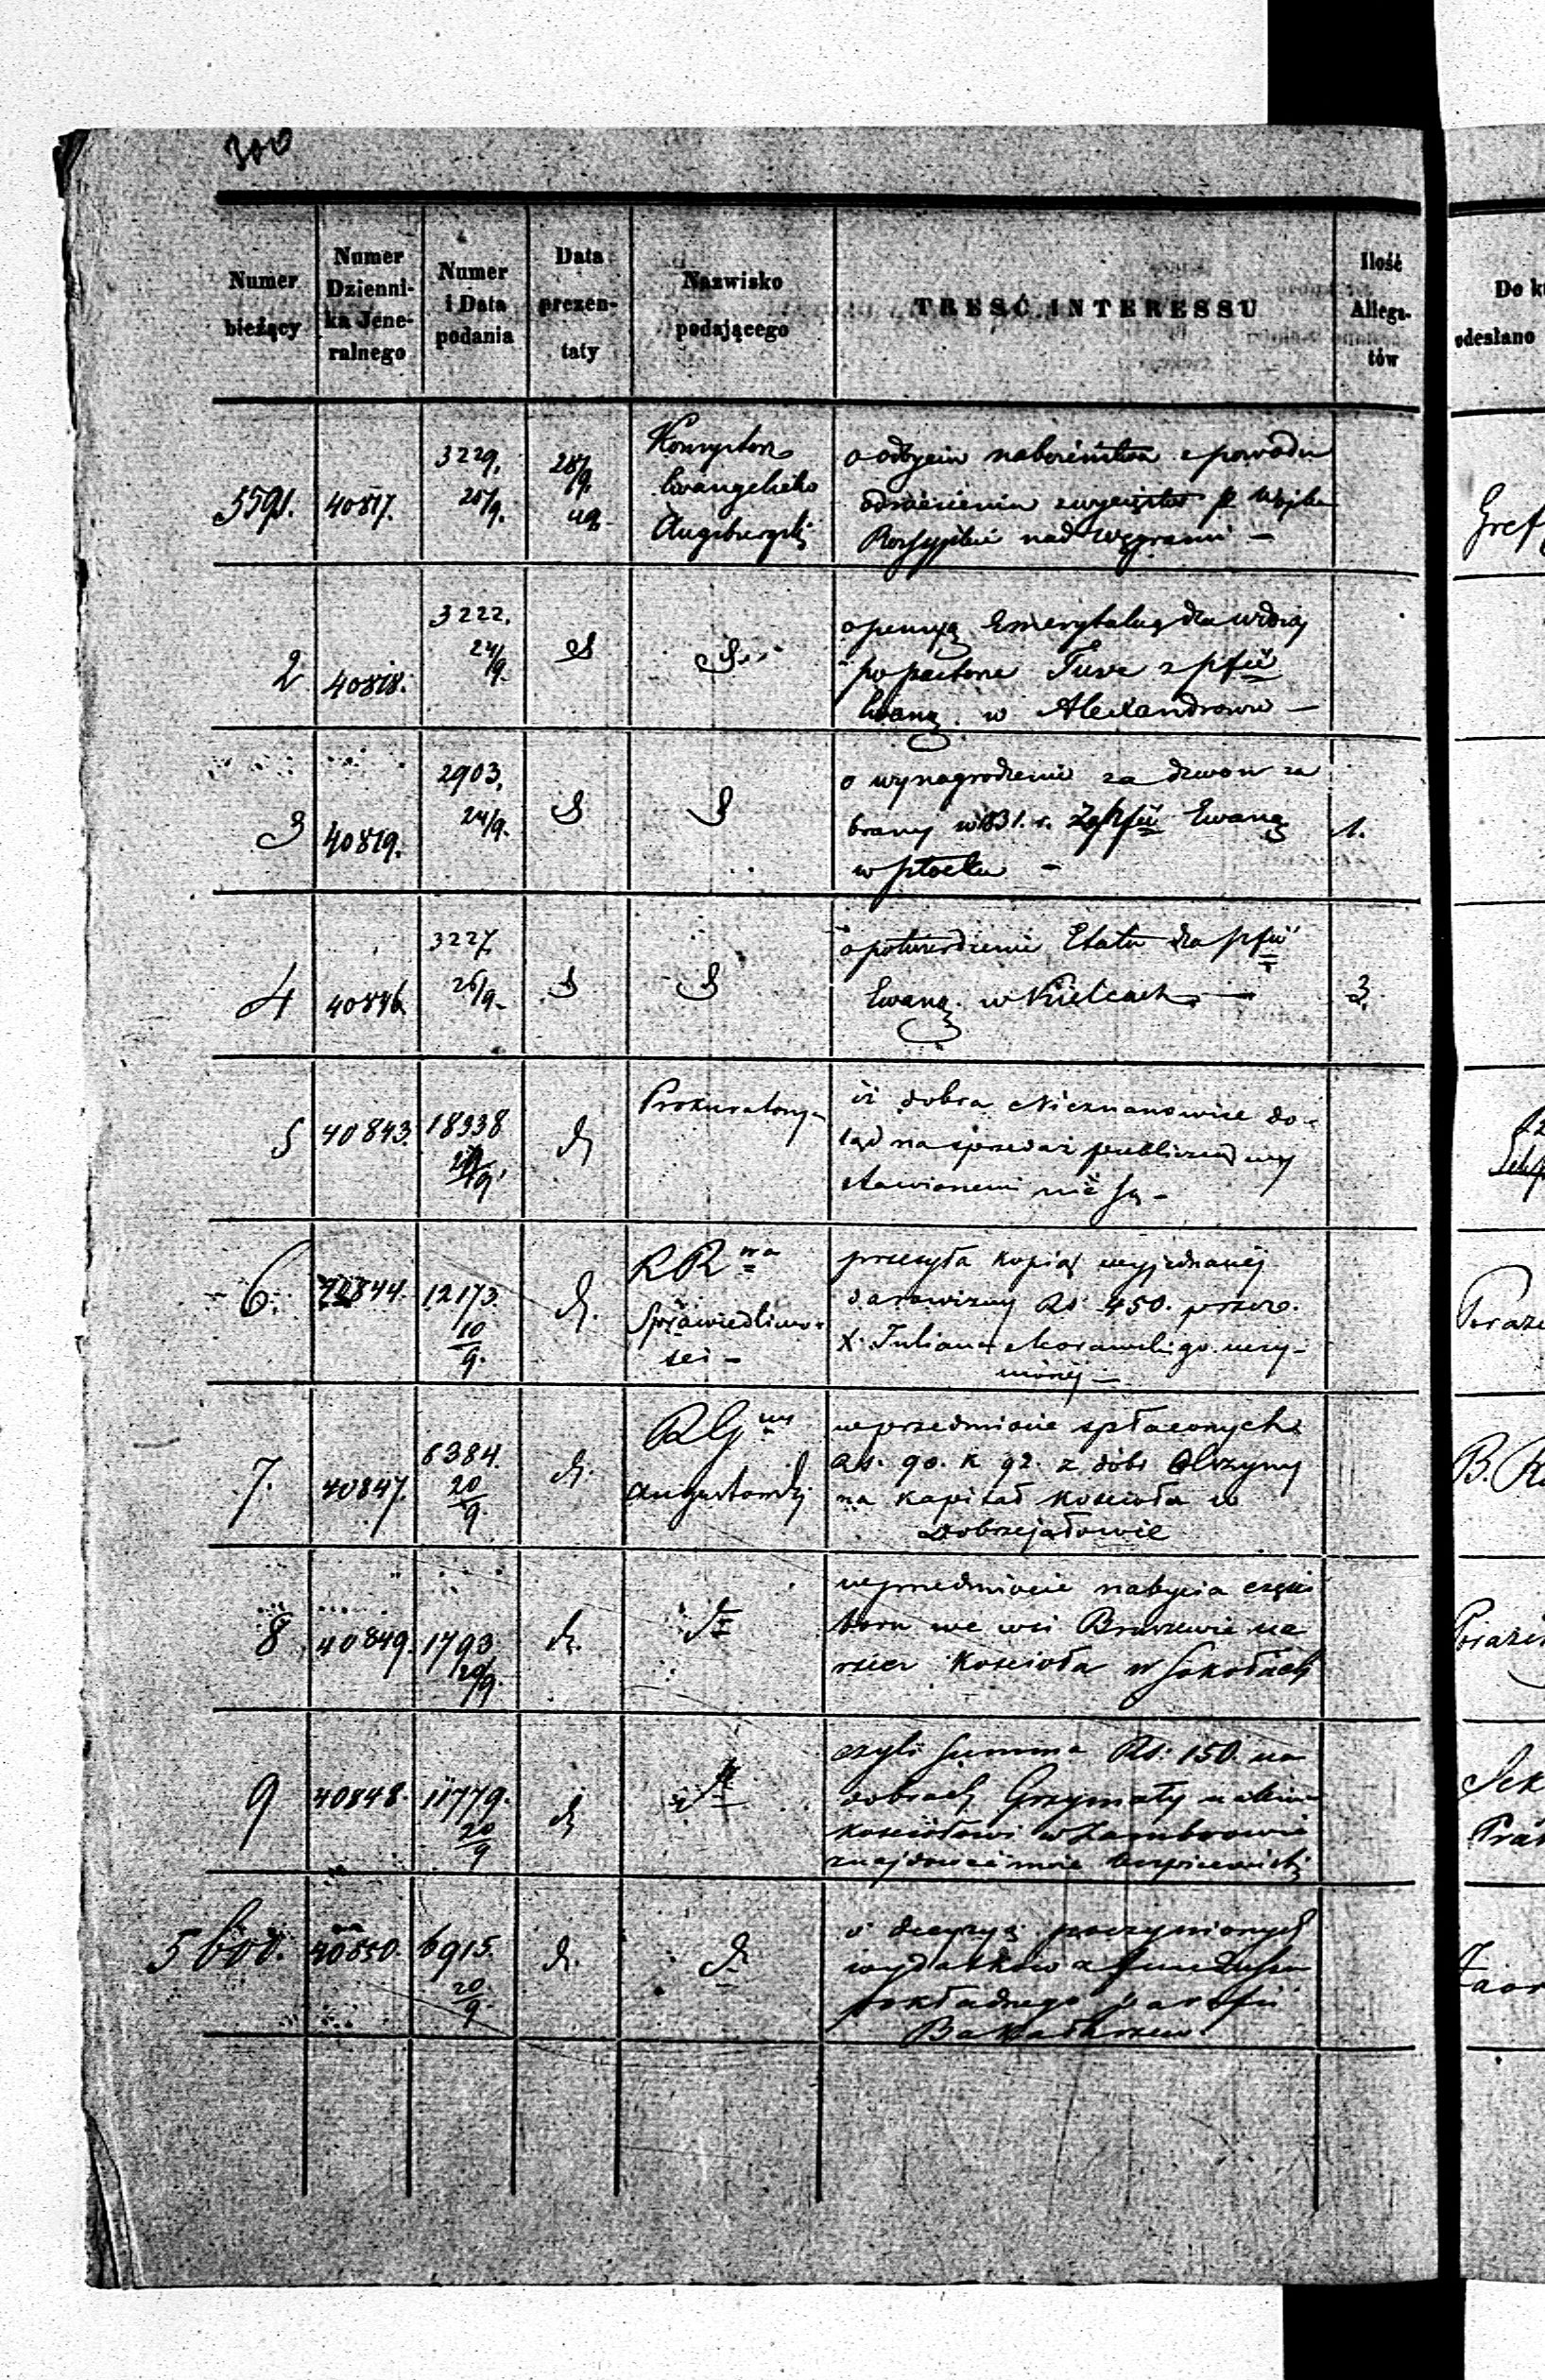 300
Numer bieżący
Numer Dzienni- ka Jene- ralnego
Numer i Data podania
Data prezen- taty
Nazwisko podającego
TREŚĆ INTERESSU
Ilość Allega- tów
Do
odesłano
5591. 40817. 3229. 25/9. 28/9
Konsystorz
Ewangelicko
Augsburgski
o odbyciu nabożeństwa z powodu
odniesienia zwycięstw p. Wojska
Rossyjskie nad Węgrami –
2 40818. 3222. 24/9.
o pensyą Emerytalną dla wdowy
po pastorze z pfii
Ewang. w Alexandrowie –
3 40819. 2903. 24/9.
o wynagrodzenie za dzwon za
brany w 1831. r. pfii Ewang 1.
w Płocku –
4 40846 3227. 26/9.
o potwierdzenie Etatu dla pfii
Ewang. w Kielcach – 3.
5 40843. 18338
Prokuratorya
iż dobra Nieznanowice do-
tąd na sprzedaż publiczną wy
stawionemi nie są –
6. 40844. 12173. 10/9.
RR wa
Sprawiedliwo-
ści –
przesyła kopią wyjednanej
darowizny Rs 450. przez
X. Juliana Morawskiego uczy-
nionej –
7. 40847. 6384. 20/9.
RG wy
Augustowski
w przedmiocie spłaconych
Rs. 90. k 92. z dóbr Olszyny
na kapitał kościoła w
Dobrzejałowie
8 40849. 1793. 20/9
w przedmiocie nabycia części
boru we wsi na
rzecz Kościoła w Sokołach
9 40848. 11779. 20/9
czyli summa Rs. 150. na
dobrach Grzymały
kościołowi w Zambrowie
znajdować może
5600. 40850. 6915. 20/9.
o decyzyą poczynionych
wydatków z funduszu
pokładnego parafii
Bakałarzewo.
Gref
B.